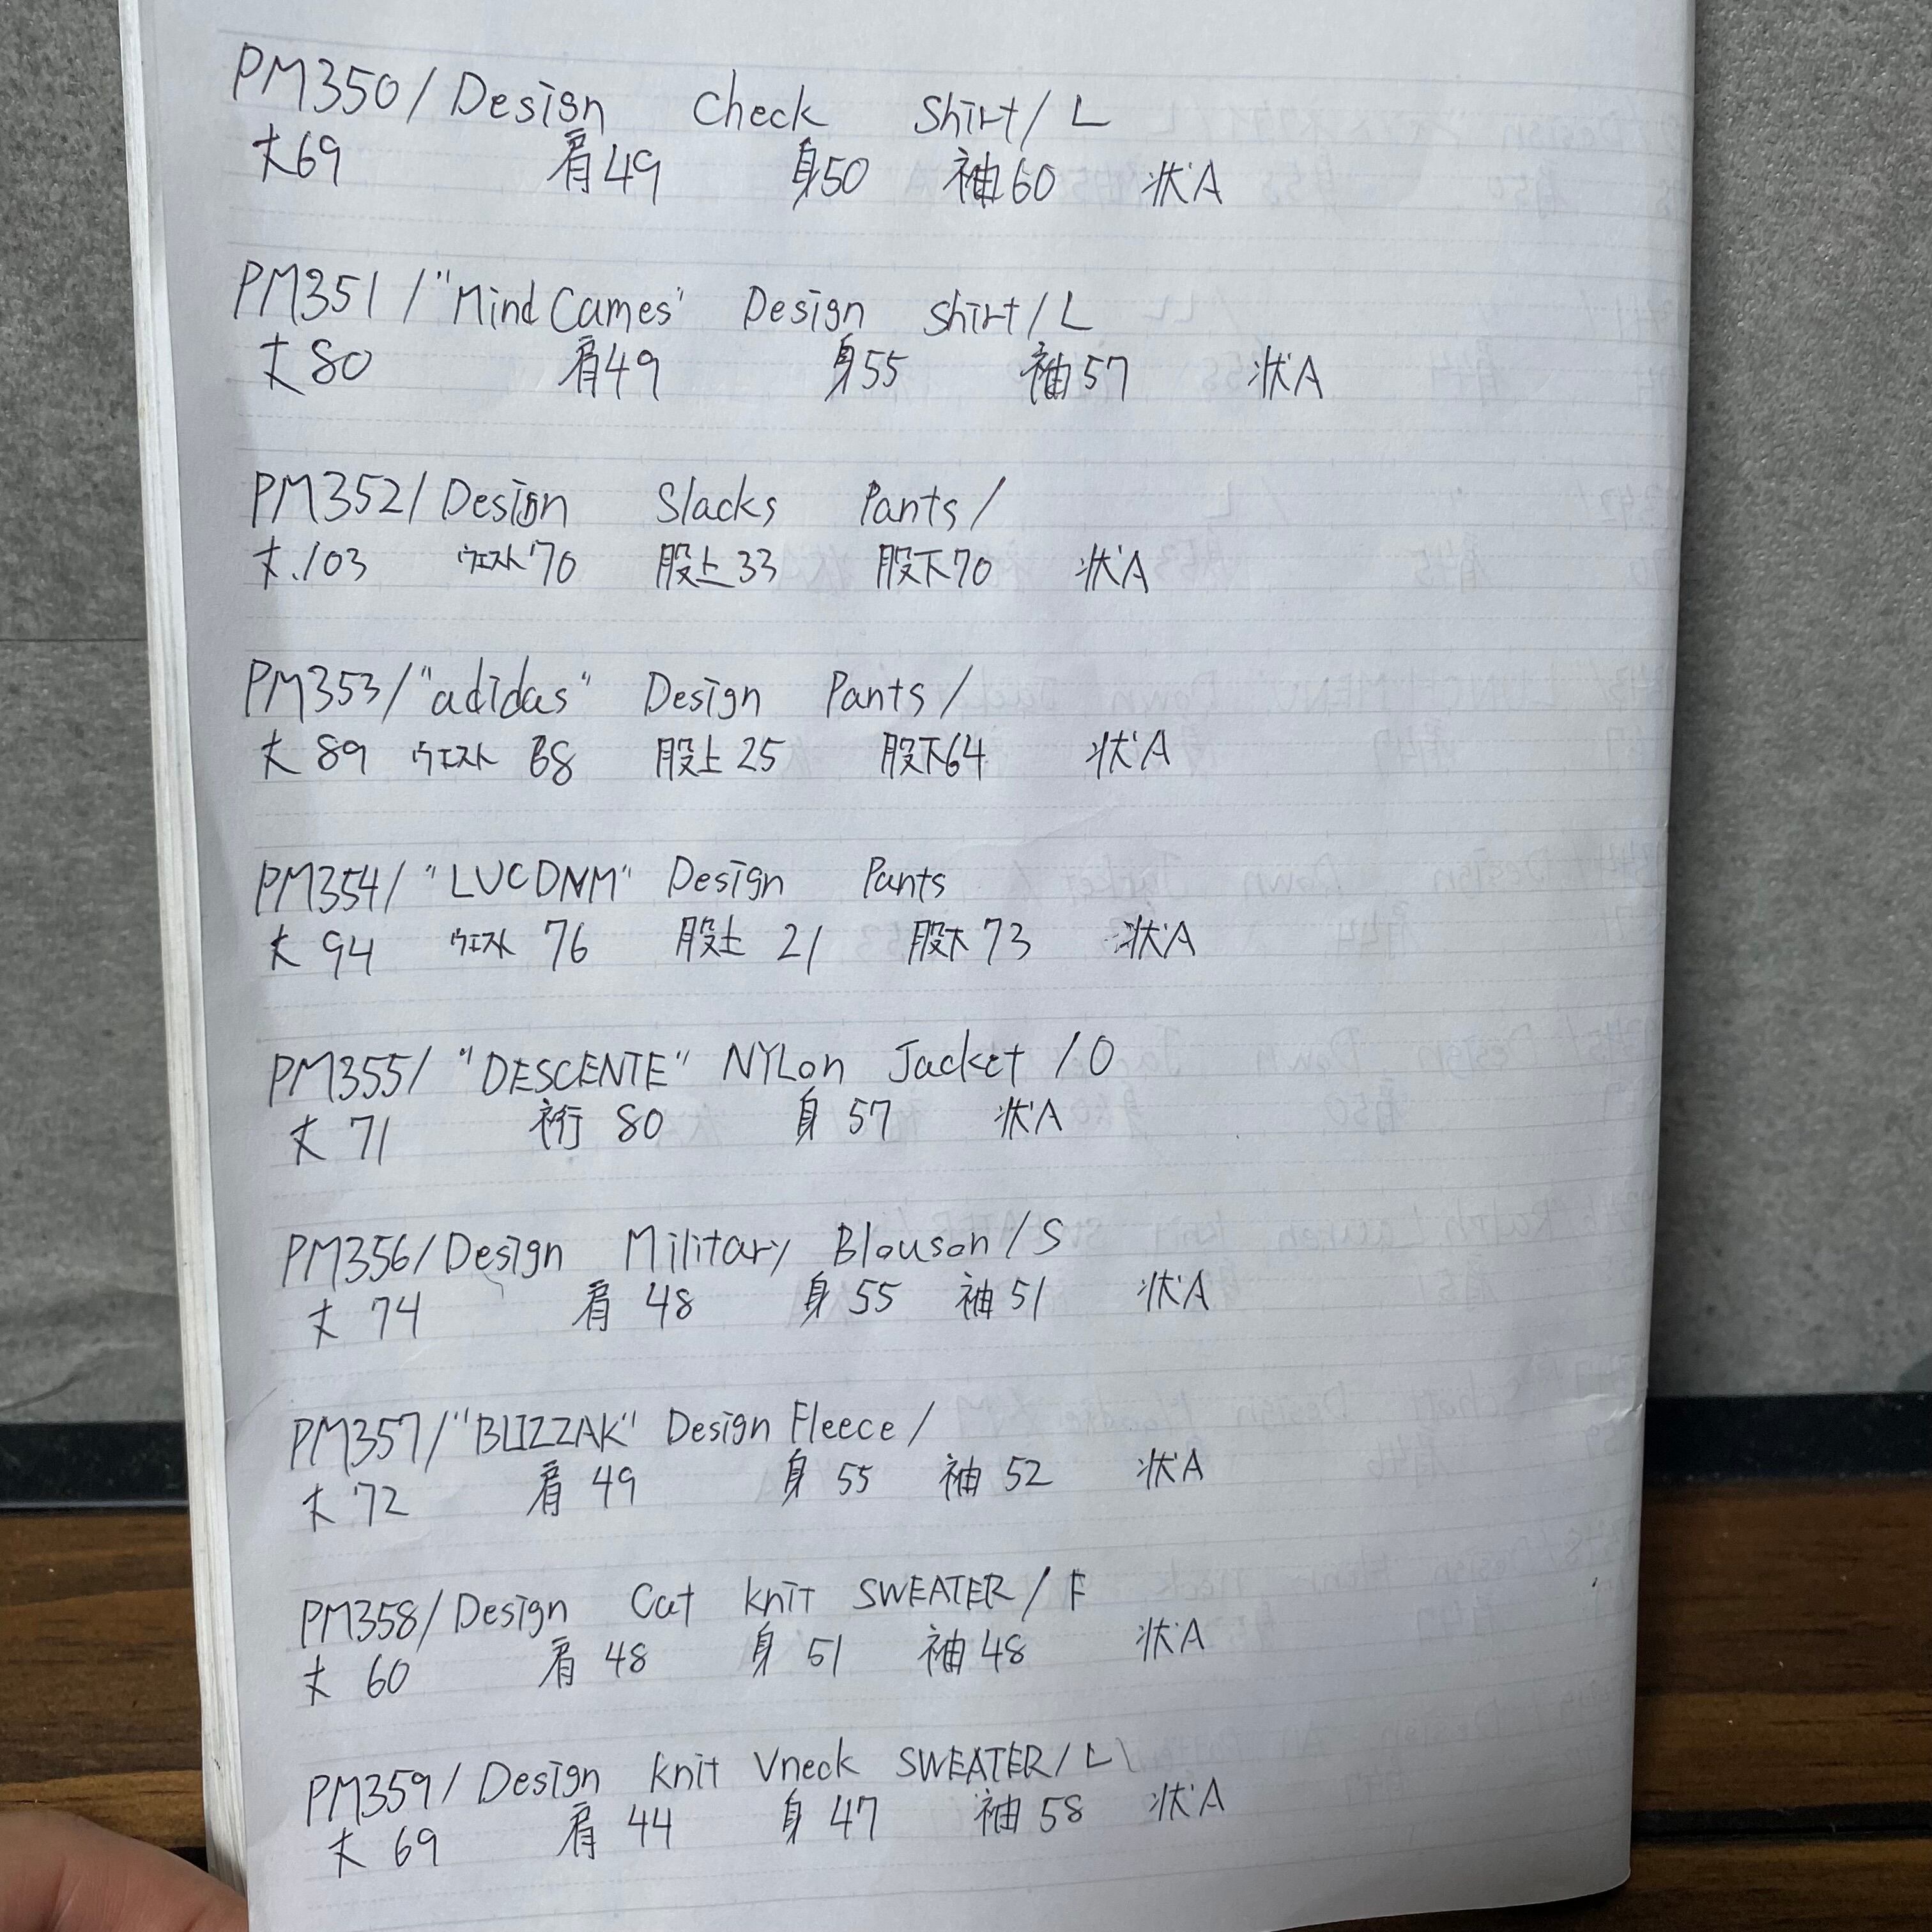 PM350/Design Check Shirt/L
丈69 肩49 身50 袖60 状A
PM351/"Mind Cames" Design shirt/L
丈80 肩49 身55 袖57 状A
PM352/Design Slacks Pants/
丈103 ウエスト70 股上33 股下70 状A
PM353/"adidas" Design Pants/
丈89 ウエスト 股上25 股下64 状A
PM354/"LUCDNM" Design Pants
丈94 ウエスト76 股上21 股下73 状A
PM355/"DESCENTE" NYLon Jacket/O
丈71 裄80 身57 状A
PM356/Design Military Blouson/S
丈74 肩48 身55 袖51 状A
PM357/"BLIZZAK" Design Fleece/
丈72 肩49 身55 袖52 状A
PM358/Design Cat knit SWEATER/F
丈60 肩48 身51 袖48 状A
PM359/Design knit Vneck SWEATER/L
丈69 肩44 身47 袖58 状A